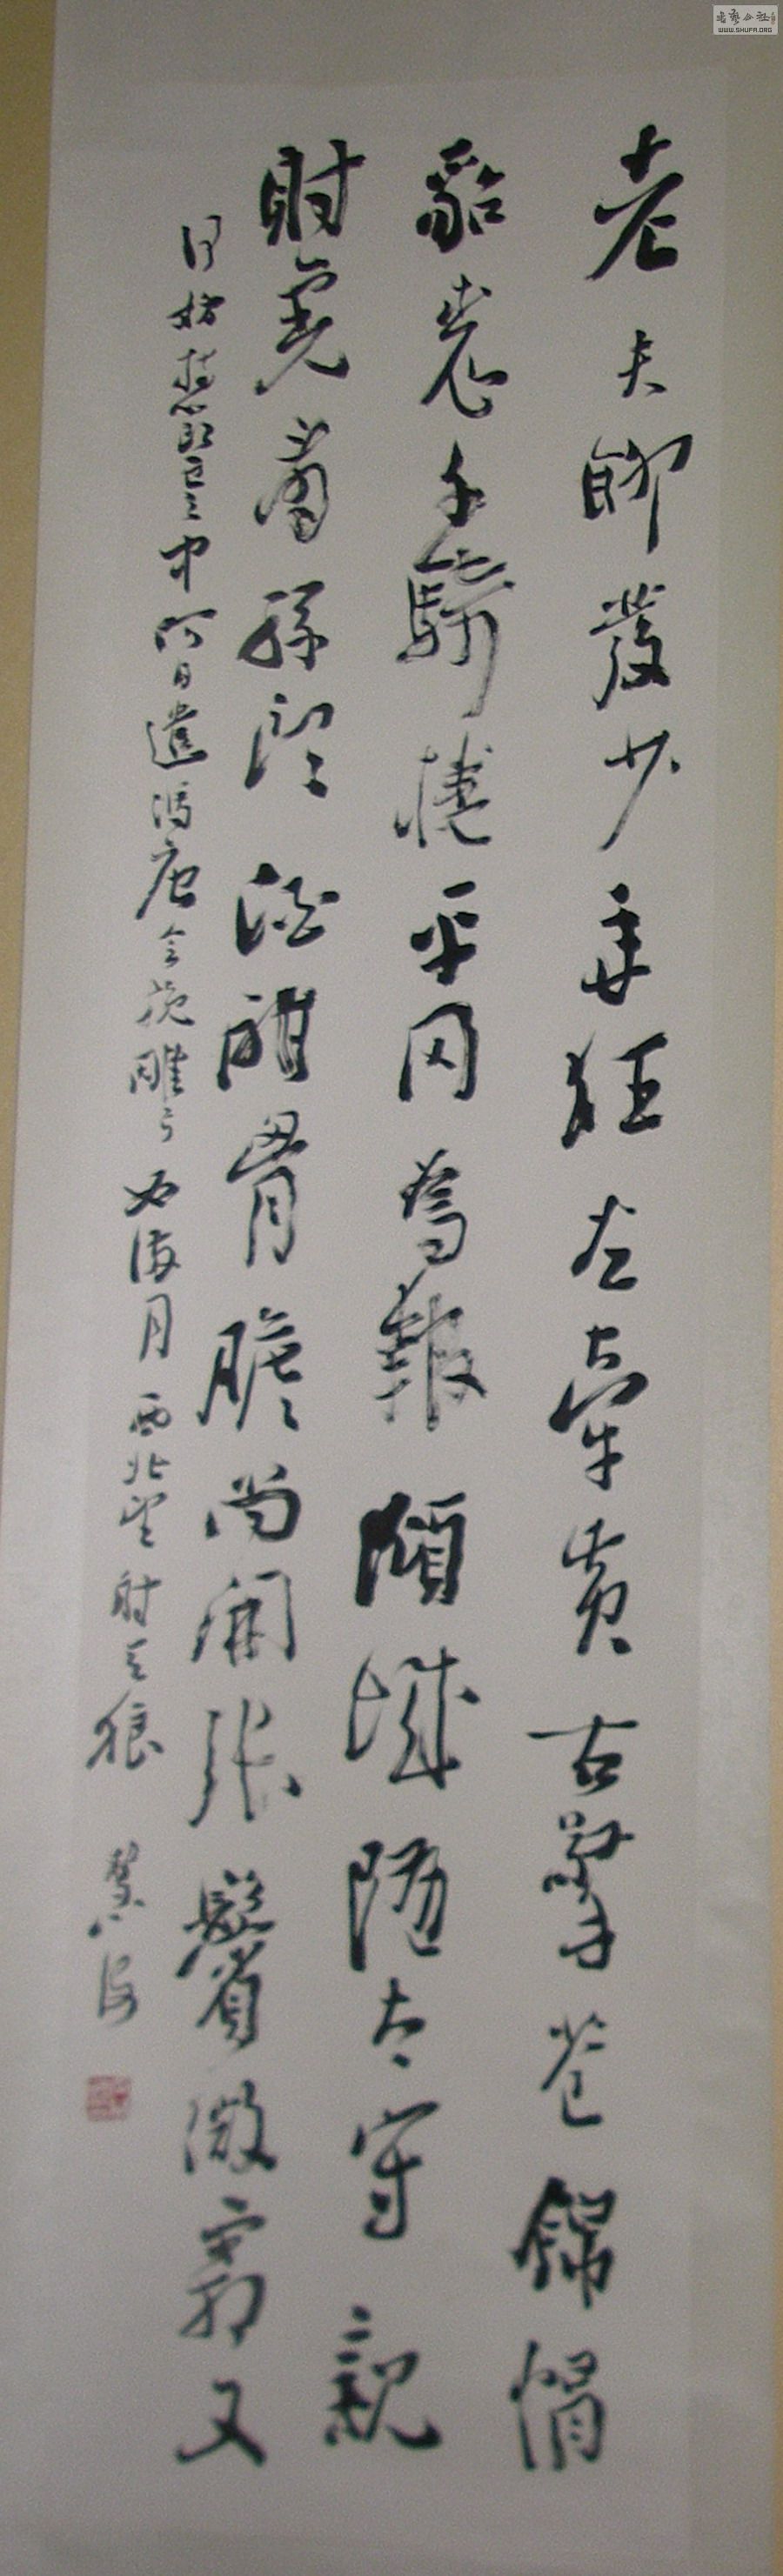 老夫聊發少年狂左牽黃右擎蒼錦帽
貂裘千騎捲平岡為報傾城隨太守親
射虎看孫郎酒酣胸膽尚開張鬢微霜又
何妨持節雲中何日遣馮唐會挽雕弓如滿月西北望射天狼
WWW.SHUFA.ORG